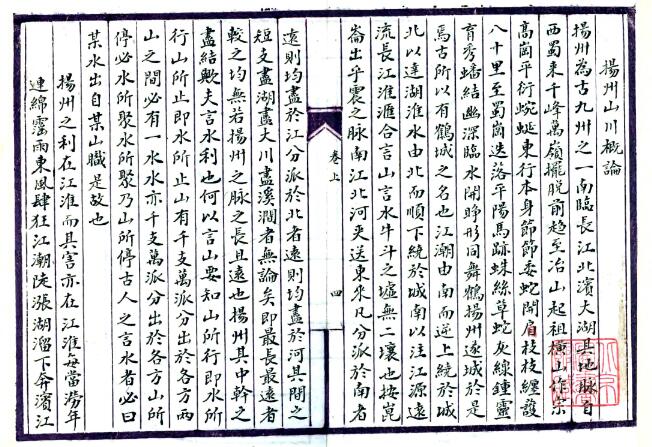 揚州山川概論
揚州為古九州之一南臨長江北濱大湖其地脉自
西蜀來千峰萬嶺擺脱前趨至冶山起祖橫山作宗
高崗平衍蜿蜒東行本身節節委蛇開眉枝枝纏護
八十里至蜀崗迭落平陽馬跡蛛絲草蛇灰線鍾靈
育秀蟠結幽深臨水開睜形同舞鶴揚州遶城於是
焉古所以有鶴城之名也江潮由南而逆上繞於城
北以達湖淮水由北而順下繞於城南以注江源遠
流長江淮滙合言山言水牛斗之墟無二壤也按崑
崙出乎震之脉南江北河夾送東來凡分派於南者
卷上
四
遠則均盡於江分派於北者遠則均盡於河其間之
短支盡湖盡大川盡溪澗者無論矣即最長最遠者
較之均無若揚州之脉之長且遠也揚州其中幹之
盡結歟夫言水利也何以言山要知山所行即水所
行山所止即水所止山有千支萬派分出於各方兩
山之間必有一水水亦千支萬派分出於各方山所
停必水所聚水所聚乃山所停古人之言水者必曰
某水出自某山職是故也
揚州之利在江淮而其害亦在江淮每當澇年
連綿霪雨東風肆狂江潮陡漲湖溜下奔濱江